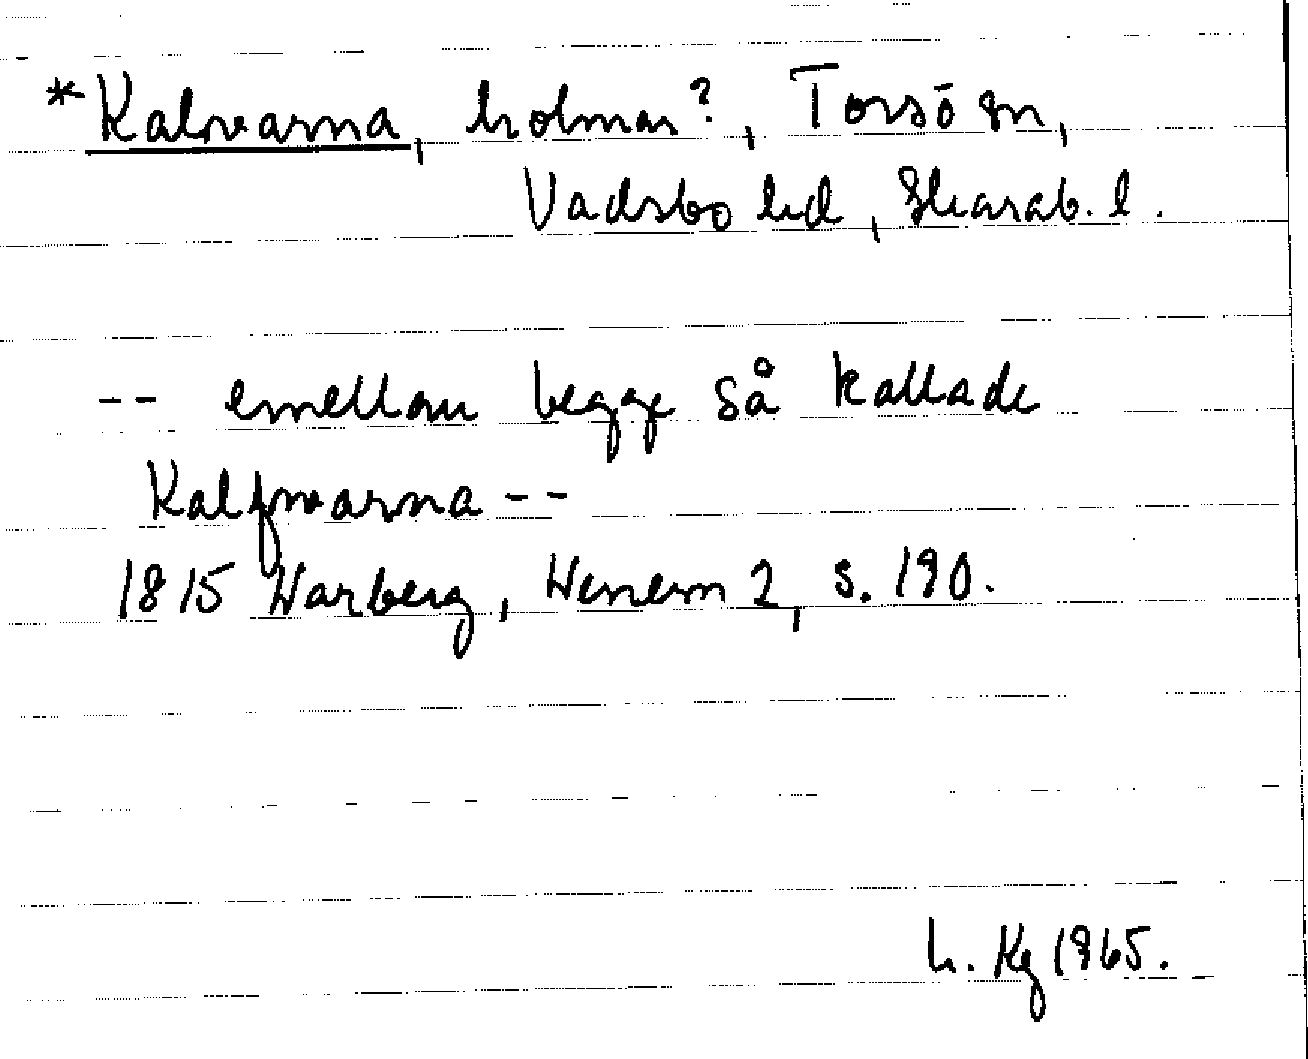 *Kalvarna, holmar?, Torsö sn,
Vadsbo hd, Skarab. l.
-- emellan begge så kallade
Kalfvarna --
1815 Warberg, Wenern 2, s. 190.
L. Kg 1965.